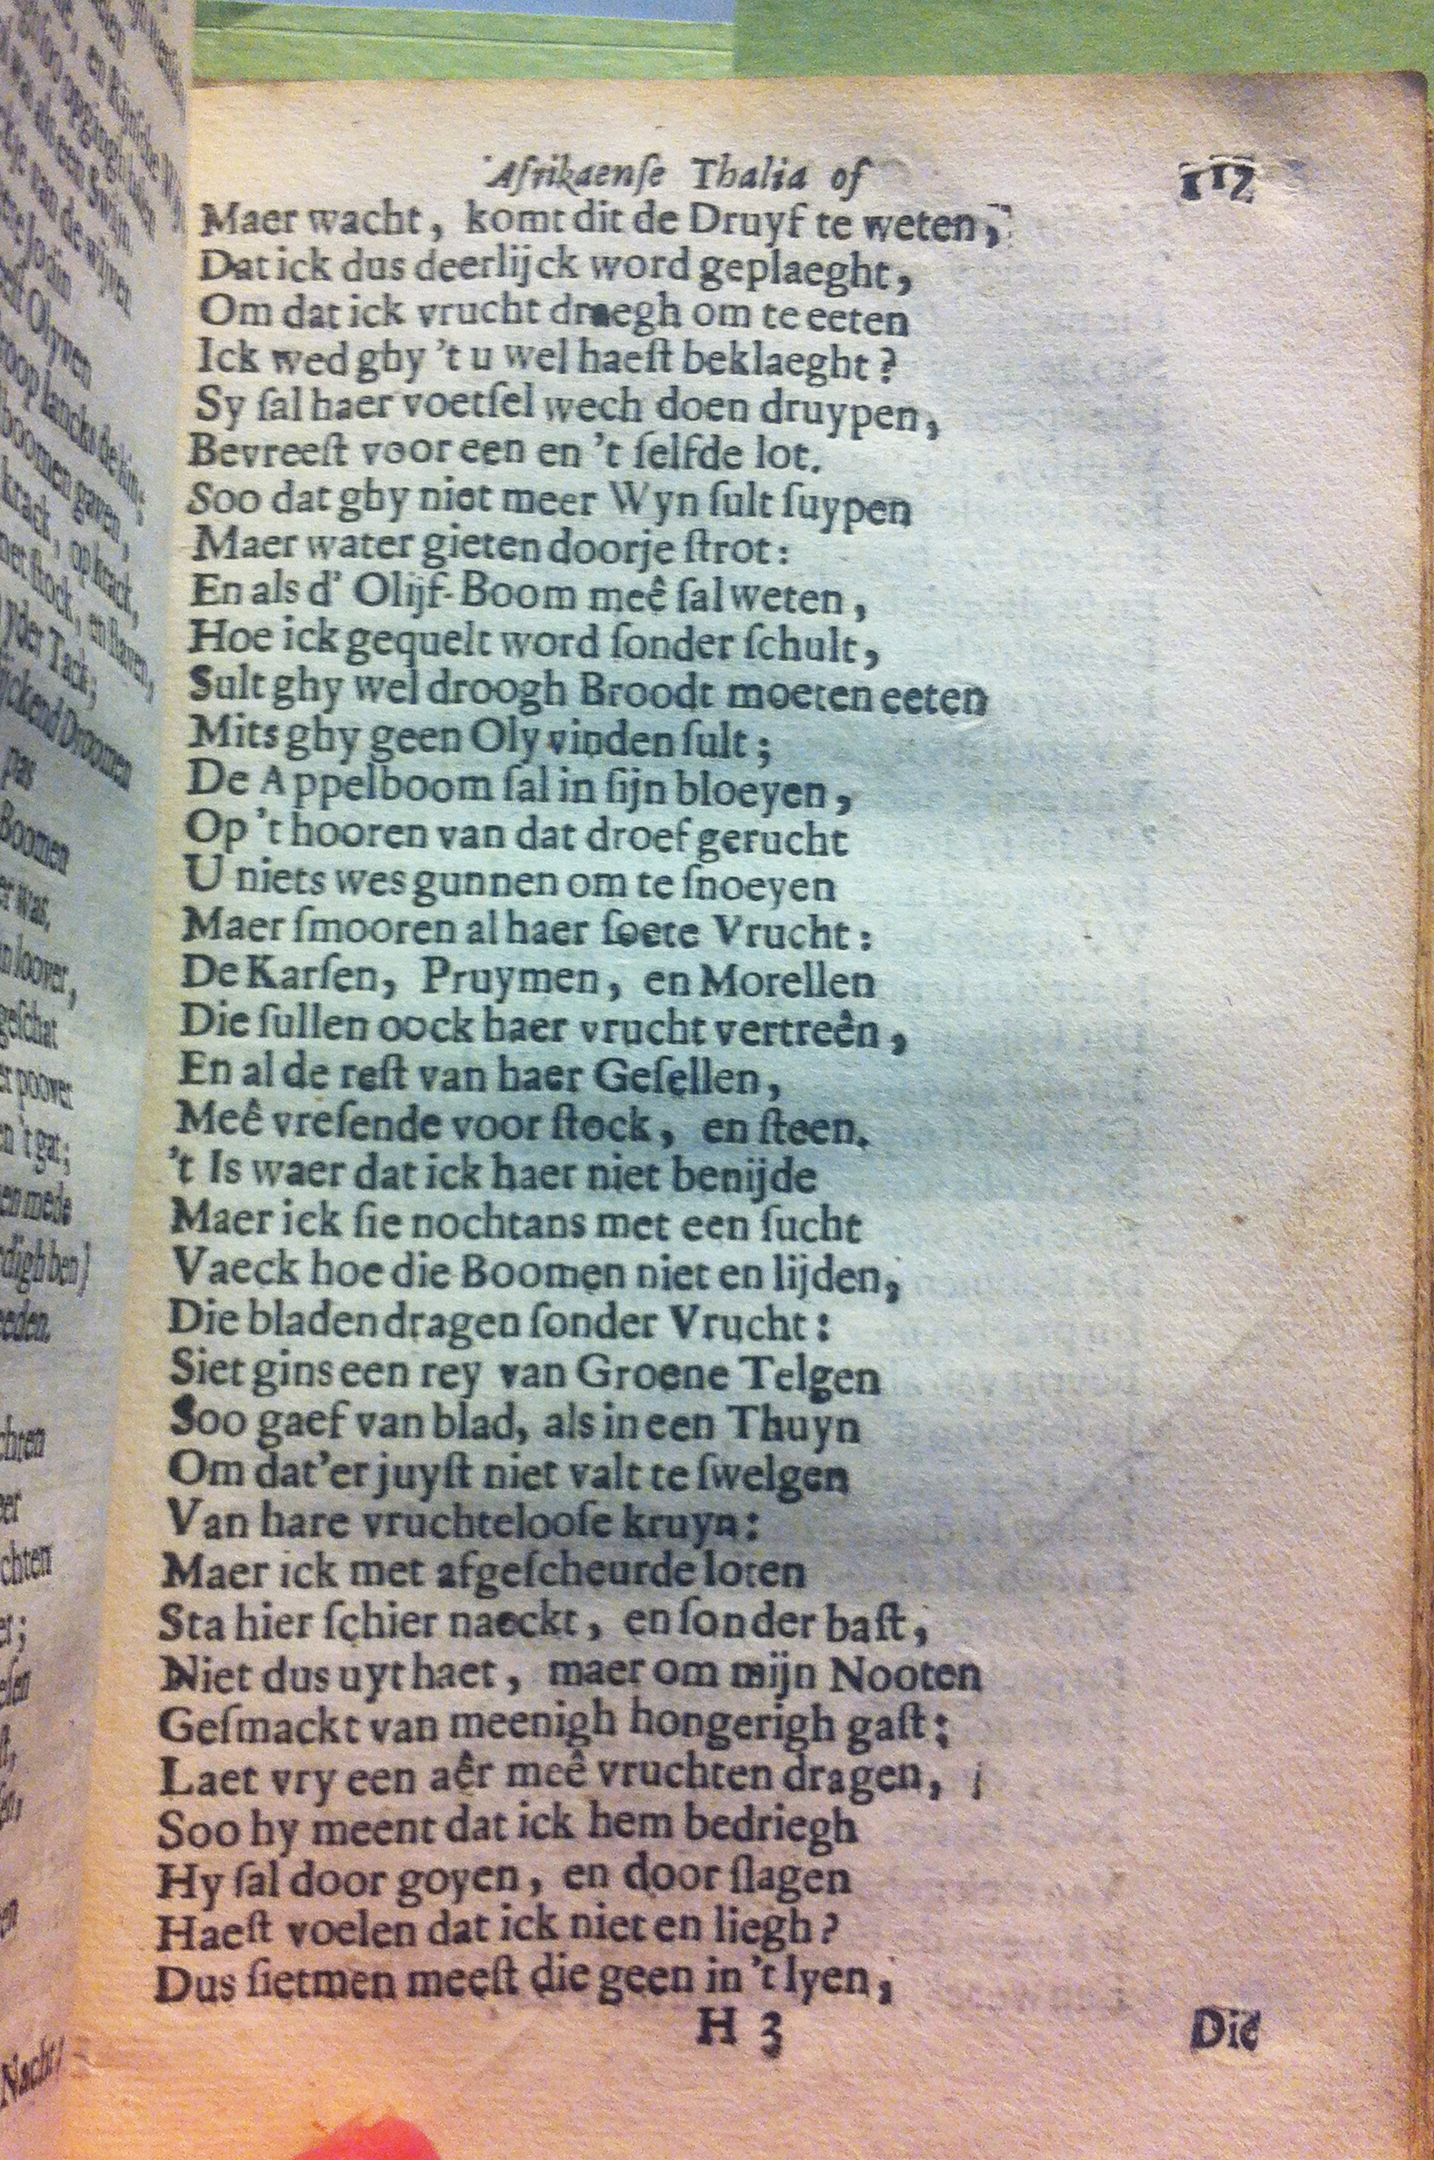 Afrikaenſe Thalia of 112
Maer wacht, komt dit de Druyf te weten,
Dat ick dus deerlijck word geplaeght,
Om dat ick vrucht draegh om te eeten
Ick wed ghy 't u wel haeſt beklaeght?
Sy ſal haer voetſel wech doen druypen,
Bevreeſt voor een en 't ſelfde lot.
Soo dat ghy niet meer Wyn ſult ſuypen
Maer water gieten door je ſtrot:
En als d' Olijf-Boom meê ſal weten,
Hoe ick gequelt word ſonder ſchult,
Sult ghy wel droogh Broodt moeten eeten
Mits ghy geen Oly vinden ſult;
De Appelboom ſal in ſijn bloeyen,
Op 't hooren van dat droef gerucht
U niets wes gunnen om te ſnoeyen
Maer ſmooren al haer ſoete Vrucht:
De Karſen, Pruymen, en Morellen
Die ſullen oock haer vrucht vertreên,
En al de reſt van haer Geſellen,
Meê vreſende voor ſtock, en ſteen.
't Is waer dat ick haer niet benijde
Maer ick ſie nochtans met een ſucht
Vaeck hoe die Boomen niet en lijden,
Die bladen dragen ſonder Vrucht:
Siet gins een rey van Groene Telgen
Soo gaef van blad, als in een Thuyn
Om dat'er juyſt niet valt te ſwelgen
Van hare vruchtelooſe kruyn:
Maer ick met afgeſcheurde loten
Sta hier ſchier naeckt, en ſonder baſt,
Niet dus uyt haet, maer om mijn Nooten
Geſmackt van meenigh hongerigh gaſt:
Laet vry een aêr meê vruchten dragen,
Soo hy meent dat ick hem bedriegh
Hy ſal door goyen, en door ſlagen
Haeſt voelen dat ick niet en liegh?
Dus ſietmen meeſt die geen in 't lyen,
H 3 Die